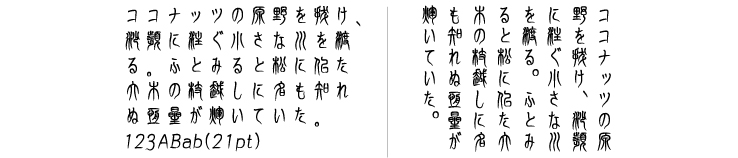 ココナッツの原野を抜け、
に注ぐ小さな川を渡
る。ふとみると松に似た
大木の枝越しに名も知れ
ぬ星が輝いていた。
123ABab(21pt)
ココナッツの原
野を抜け、
に注ぐ小さな川
を渡る。ふとみ
ると松に似た大
木の枝越しに名
も知れぬ星が
輝いていた。